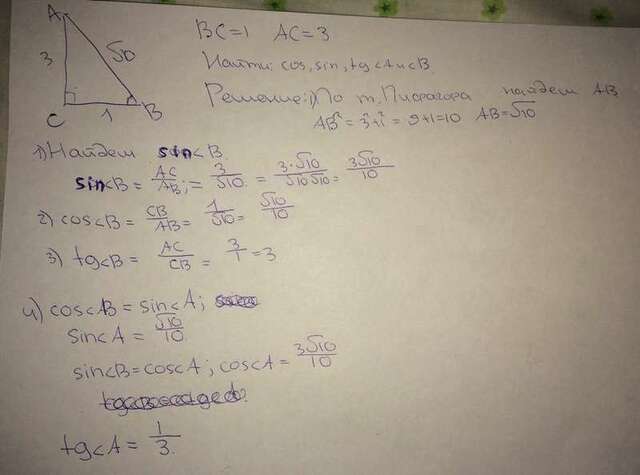 A
3
√10
C
1
B
BC=1 AC=3
Найти: cos, sin, tg<A и <B
Решение: 1) По т. Пифагора найдем AB
AB²=3²+1²=9+1=10 AB=√10
1) Найдем sin<B.
sin<B = AC/AB; = 3/√10 = 3·√10/√10√10 = 3√10/10
2) cos<B = CB/AB = 1/√10 = √10/10
3) tg<B = AC/CB = 3/1 = 3
4) cos<B = sin<A;
sin<A = √10/10
sin<B=cos<A; cos<A = 3√10/10
tg<A = 1/3.